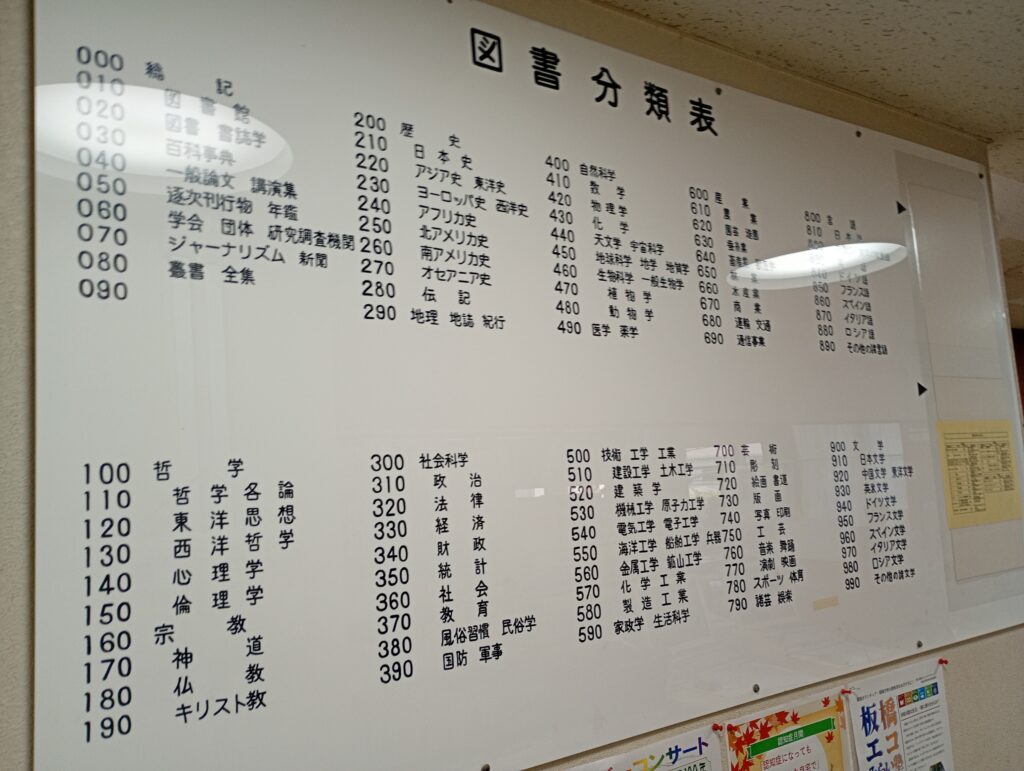 図書分類表
000 総記
010 図書館
020 図書 書誌学
030 百科事典
040 一般論文 講演集
050 逐次刊行物 年鑑
060 学会 団体 研究調査機関
070 ジャーナリズム 新聞
080 叢書 全集
090
100 哲学
110 哲学各論
120 東洋思想
130 西洋哲学
140 心理学
150 倫理学
160 宗教
170 神道
180 仏教
190 キリスト教
200 歴史
210 日本史
220 アジア史 東洋史
230 ヨーロッパ史 西洋史
240 アフリカ史
250 北アメリカ史
260 南アメリカ史
270 オセアニア史
280 伝記
290 地理 地誌 紀行
300 社会科学
310 政治
320 法律
330 経済
340 財政
350 統計
360 社会
370 教育
380 風俗習慣 民俗学
390 国防 軍事
400 自然科学
410 数学
420 物理学
430 化学
440 天文学 宇宙科学
450 地球科学 地学 地質学
460 生物科学 一般生物学
470 植物学
480 動物学
490 医学 薬学
500 技術 工学 工業
510 建設工学 土木工学
520 建築学
530 機械工学 原子力工学
540 電気工学 電子工学
550 海洋工学 船舶工学 兵器
560 金属工学 鉱山工学
570 化学工業
580 製造工業
590 家政学 生活科学
600 産業
610 農業
620 園芸 造園
630 蚕糸業
640
650
660 水産業
670 商業
680 運輸 交通
690 通信事業
700 芸術
710 彫刻
720 絵画 書道
730 版画
740 写真 印刷
750 工芸
760 音楽 舞踊
770 演劇 映画
780 スポーツ 体育
790 諸芸 娯楽
800 言語
810 日本語
ドイツ語
850 フランス語
860 スペイン語
870 イタリア語
880 ロシア語
890 その他の諸言語
900 文学
910 日本文学
920 中国文学 東洋文学
930 英米文学
940 ドイツ文学
950 フランス文学
960 スペイン文学
970 イタリア文学
980 ロシア文学
990 その他の諸文学
コンサート
認知症月間
認知症になっても
板橋
エコ